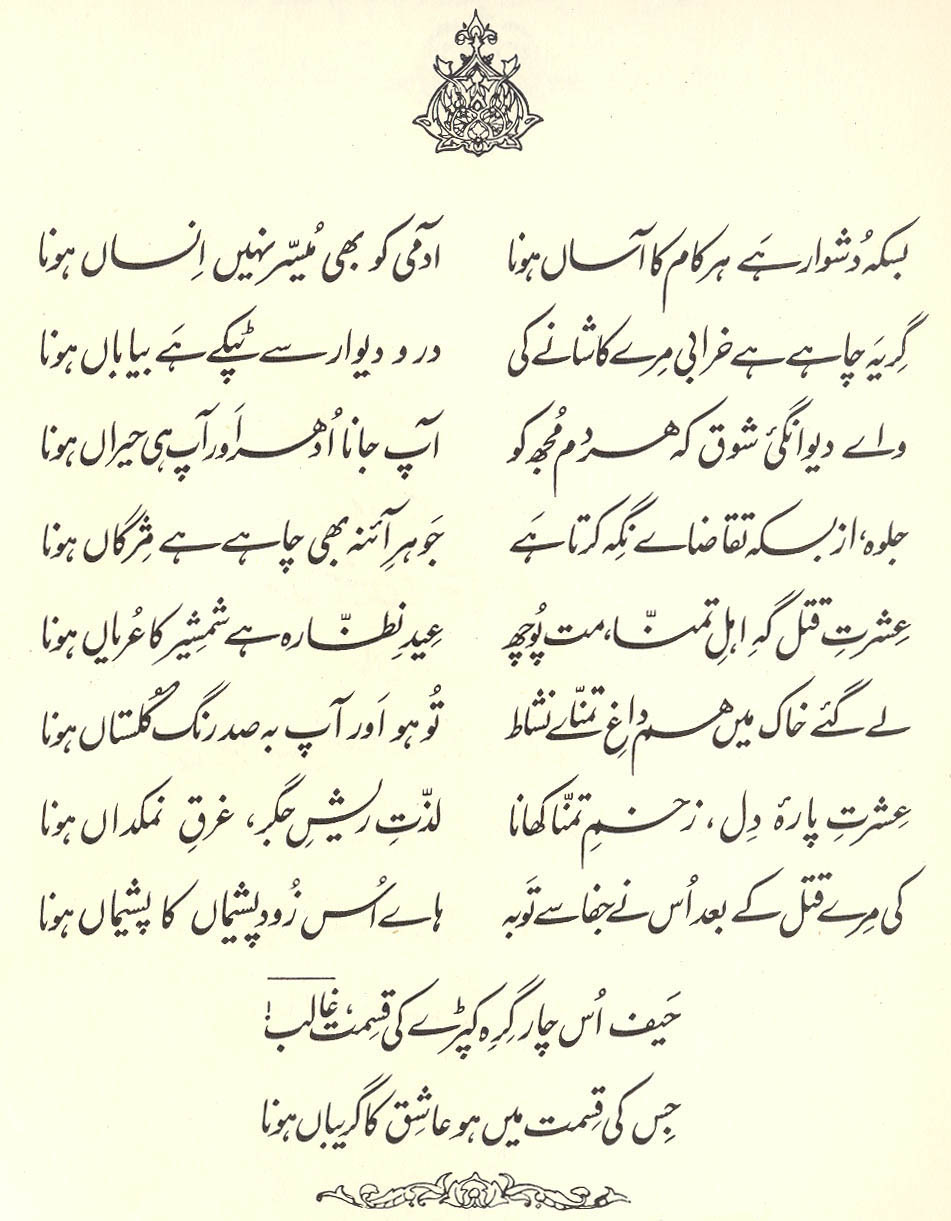 بسکہ دُشوار ہَے ہر کام کا آساں ہونا آدمی کو بھی مُیسّر نہیں اِنساں ہونا
گِریَہ چاہے ہے خرابی مِرے کاشانے کی در و دیوار سے ٹپکے ہَے بیاباں ہونا
واے دیوانگیٔ شوق کہ ہر دم مُجھ کو آپ جانا اُدھر اَور آپ ہی حیراں ہونا
جلوہ، از بسکہ تقاضاے نِگہ کرتا ہَے جَوہرِ آئنہ بھی چاہے ہے مِژگاں ہونا
عِشرتِ قتل گہِ اہلِ تمنّا، مت پُوچھ عِیدِ نظّارہ ہے شمشِیر کا عُریاں ہونا
لے گئے خاک میں ہم داغِ تمنّاے نشاط تُو ہو اَور آپ بہ صد رنگ گُلستاں ہونا
عِشرتِ پارۂ دِل، زخمِ تمنّا کھانا لذّتِ ریشِ جگر، غرقِ نمکداں ہونا
کی مِرے قتل کے بعد اُس نے جفا سے تَوبہ ہاے اُس زُود پشیماں کا پشیماں ہونا
حَیف اُس چار گِرِہ کپڑے کی قِسمت، غالبؔ!
جِس کی قِسمت میں ہو عاشِق کا گریباں ہونا